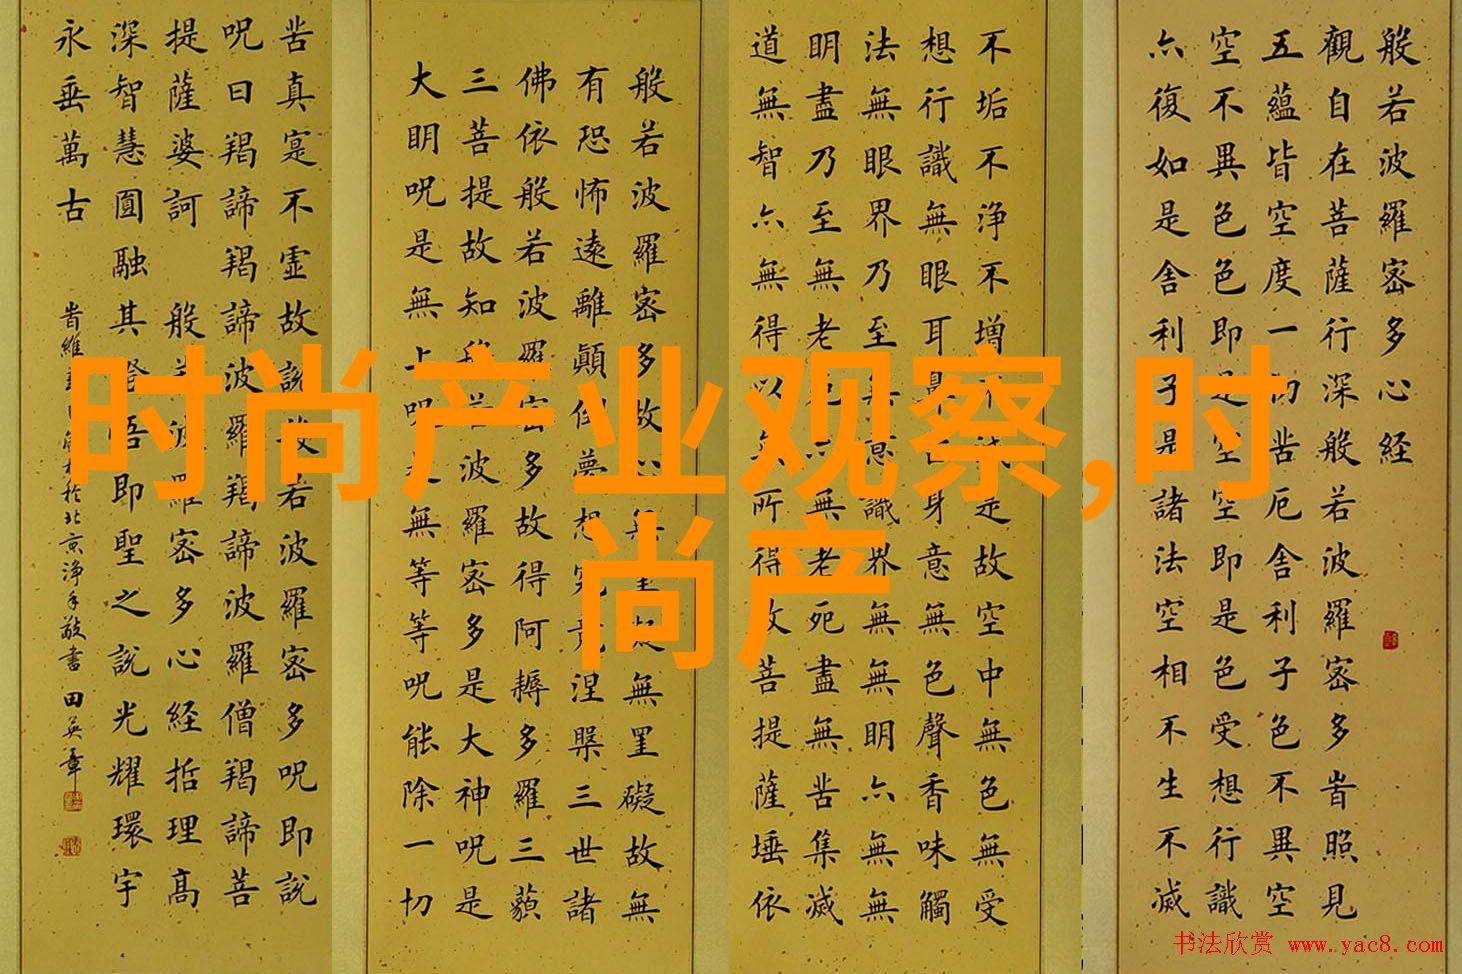 般若波羅密多心経
觀自在菩薩行深般若波羅密多旹照見
五蘊皆空度一切苦厄舍利子色不異空
空不異色色即是空空即是色受想行識
亦復如是舍利子是諸法空相不生不滅
不垢不淨不增不減是故空中無色無受
想行識無眼耳鼻舌身意無色聲香味觸
法無眼界乃至無意識界無無明亦無無
明盡乃至無老死亦無老死盡無苦集滅
道無智亦無得以無所得故菩提薩埵依
般若波羅密多故心無罣礙無罣礙故無
有恐怖遠離顛倒夢想究竟涅槃三世諸
佛依般若波羅密多故得阿耨多羅三藐
三菩提故知般若波羅密多是大神呪是
大明呪是無上呪是無等等呪能除一切
苦真寔不虛故說般若波羅密多呪即說
呪曰羯諦羯諦波羅羯諦波羅僧羯諦菩
提薩婆訶 般若波羅密多心経括理高
深智慧圓融其證悟即聖之說光耀環宇
永垂萬古
旹維 於北京淨手敬書 田英章
时尚产业观察,时
尚产
书法欣赏 www.yac8.com